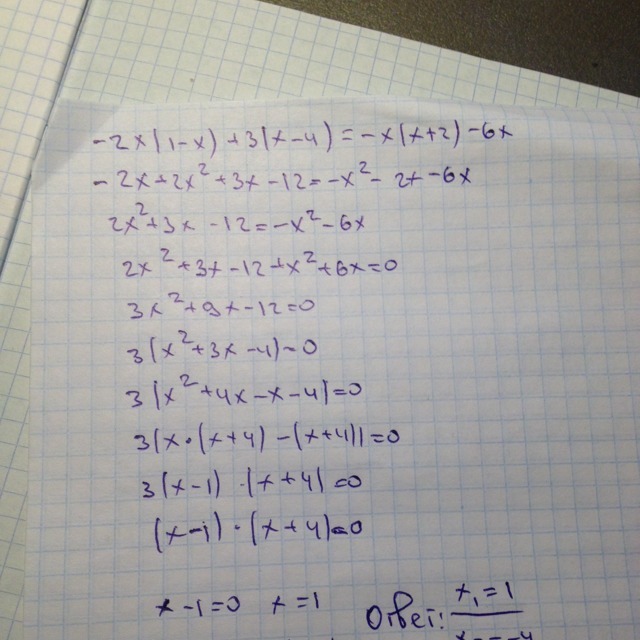 -2x(1-x)+3(x-4)=-x(x+2)-6x
-2x+2x²+3x-12=-x²-2x-6x
2x²+3x-12=-x²-6x
2x²+3x-12+x²+6x=0
3x²+9x-12=0
3(x²+3x-4)=0
3(x²+4x-x-4)=0
3(x·(x+4)-(x+4))=0
3(x-1)·(x+4)=0
(x-1)·(x+4)=0
x-1=0 x=1 Ответ: x₁=1